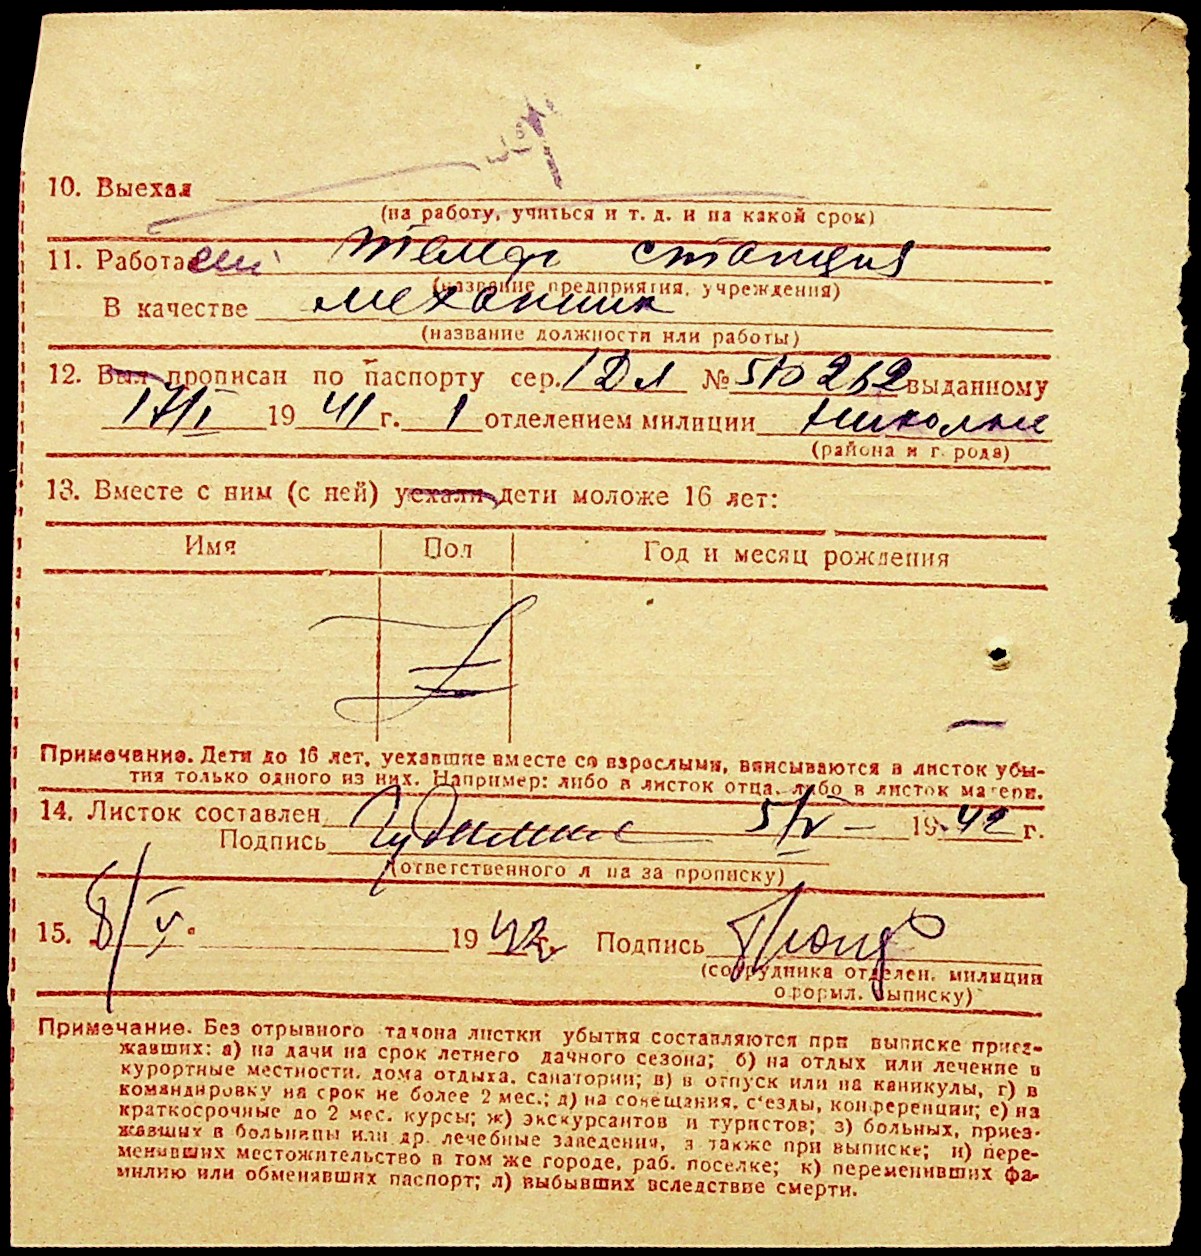 10. Выехал
(на работу, учиться и т. д. и на какой срок)
11. Работает телеф станция
(название предприятия, учреждения)
В качестве механик
(название должности или работы)
12. Был прописан по паспорту сер. 1 Дл № 510262 выданному
17/I 1941 г. 1 отделением милиции
(района и г. рода)
13. Вместе с ним (с ней) уехали дети моложе 16 лет:
Имя Пол Год и месяц рождения
Примечание. Дети до 16 лет, уехавшие вместе со взрослыми, вписываются в листок убы-
тия только одного из них. Например: либо в листок отца, либо в листок матери.
14. Листок составлен 5/IV - 1942 г.
Подпись
(ответственного л ца за прописку)
15. 8/V. 1942 г. Подпись
(сотрудника отделен. милиции
оформл. выписку)
Примечание. Без отрывного талона листки убытия составляются при выписке приез-
жавших: а) на дачи на срок летнего дачного сезона; б) на отдых или лечение в
курортные местности, дома отдыха, санатории; в) в отпуск или на каникулы, г) в
командировку на срок не более 2 мес.; д) на совещания, с'езды, конференции; е) на
краткосрочные до 2 мес. курсы; ж) экскурсантов и туристов; з) больных, приез-
жавших в больницы или др. лечебные заведения, а также при выписке; и) пере-
менивших местожительство в том же городе, раб. поселке; к) переменивших фа-
милию или обменявших паспорт; л) выбывших вследствие смерти.